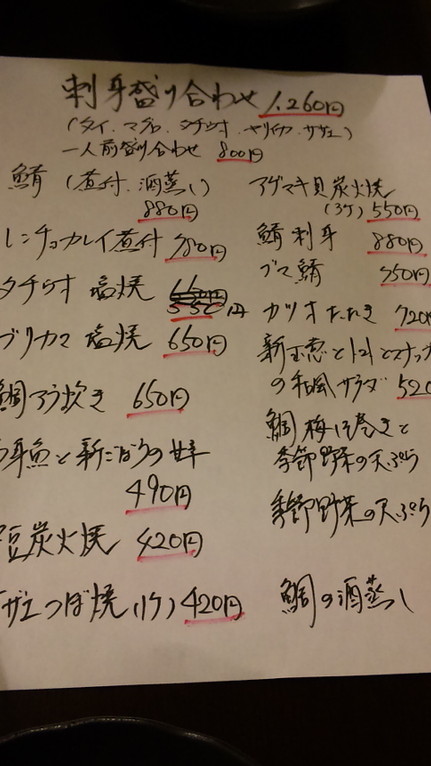 刺身盛り合わせ 1,260円
(タイ、マグロ、タチウオ、ヤリイカ、サザエ)
一人前盛り合わせ 800円
鯖 (煮付、酒蒸し)
880円
レンチョカレイ煮付 780円
タチウオ 塩焼
550円
ブリカマ 塩焼 650円
鯛アラ炊き 650円
身魚と新ごぼうの
490円
豆炭火焼 420円
ザエつぼ焼(1ケ) 420円
アゲマキ貝炭火焼
(3ケ) 550円
鯖刺身 880円
ゴマ鯖
カツオたたき 720円
新玉葱とトマトとスナップ
の和風サラダ 520
鯛梅しそ巻きと
季節野菜の天ぷら
季節野菜の天ぷら
鯛の酒蒸し